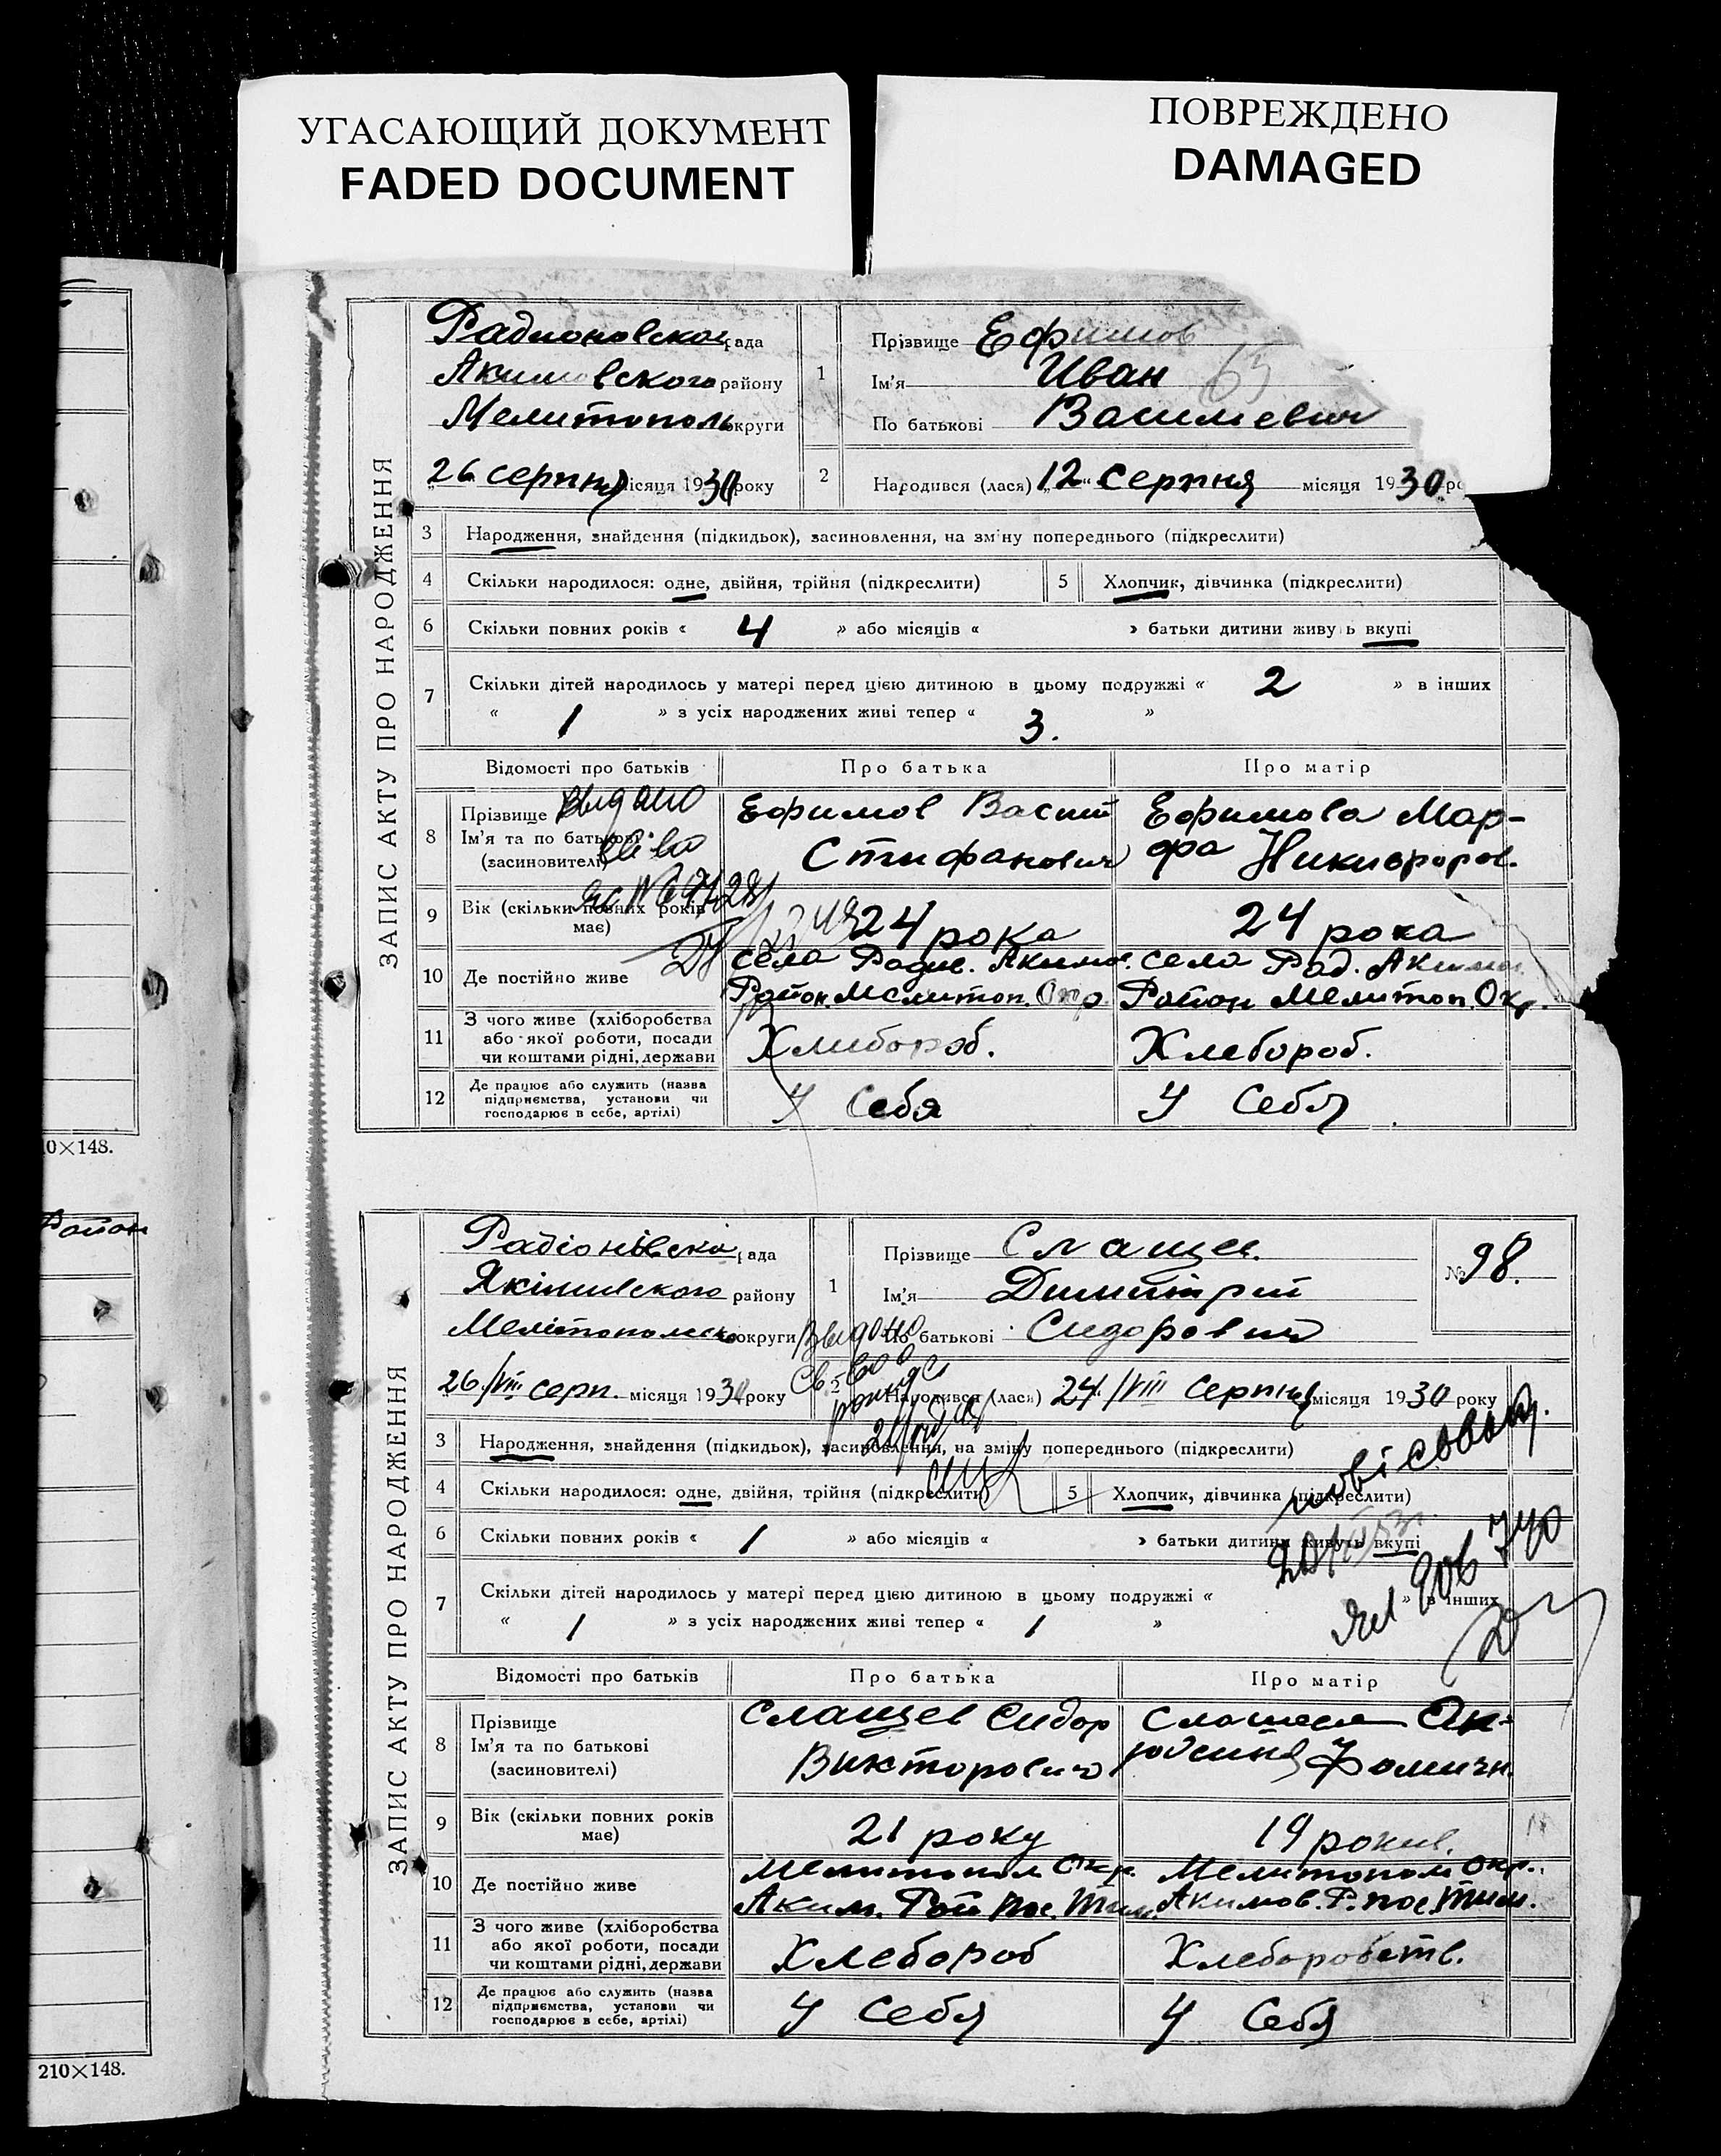 УГАСАЮЩИЙ ДОКУМЕНТ
FADED DOCUMENT
ПОВРЕЖДЕНО
DAMAGED
0×148.
Район
210×148.
ЗАПИС АКТУ ПРО НАРОДЖЕННЯ
Радионовской рада
Акимовского району
Мелитополь округи
26 серпня місяця 1930 року
1 Прізвище Ефимов
Ім'я Иван
По батькові Василиевич
2 Народився (лася) „12“ серпня місяця 1930 ро
3 Народження, знайдення (підкидьок), засиновлення, на зміну попереднього (підкреслити)
4 Скільки народилося: одне, двійня, трійня (підкреслити) 5 Хлопчик, дівчинка (підкреслити)
6 Скільки повних років « 4 » або місяців « » батьки дитини живуть вкупі
7 Скільки дітей народилось у матері перед цією дитиною в цьому подружжі « 2 » в інших
« 1 » з усіх народжених живі тепер « 3. »
Відомості про батьків Про батька Про матір
8 Прізвище Ім'я та по батькові (засиновителі)
Видано
Ефимов Васил
Стифанович
Ефимова Мар-
фа Никифоров.
9 Вік (скільки повних років має) 24 рока 24 рока
10 Де постійно живе
села Радив. Акимов.
Район. Мелитоп. Окр.
села Рад. Акимов.
Район Мелитоп. Окр.
11 З чого живе (хліборобства або якої роботи, посади чи коштами рідні, держави Хлибороб. Хлебороб.
12 Де працює або служить (назва підприємства, установи чи господарює в себе, артілі) У Себя У Себя
ЗАПИС АКТУ ПРО НАРОДЖЕННЯ
Радіонівська рада
Якімивского району
Мелітопольско округи
26/VIII серп. місяця 1930 року
1 Прізвище Слащев
Ім'я Димитрий
По батькові Сидорович
№ 98.
Видано
Народився (лася) 24/VIII Серпня місяця 1930 року
3 Народження, знайдення (підкидьок), засиновлення, на зміну попереднього (підкреслити)
4 Скільки народилося: одне, двійня, трійня (підкреслити) 5 Хлопчик, дівчинка (підкреслити)
6 Скільки повних років « 1 » або місяців « » батьки дитини живуть вкупі
7 Скільки дітей народилось у матері перед цією дитиною в цьому подружжі « » в інших
« 1 » з усіх народжених живі тепер « 1 »
Відомості про батьків Про батька Про матір
8 Прізвище Ім'я та по батькові (засиновителі)
Слащев Сидор
Викторович
Фомичн.
9 Вік (скільки повних років має) 21 року 19 рокив.
10 Де постійно живе
Мелитопол Окр.
Аким. Рай пос. Тим.
Мелитопол Окр.
Акимов. Р. пос. Тим.
11 З чого живе (хліборобства або якої роботи, посади чи коштами рідні, держави Хлебороб Хлеборобств.
12 Де працює або служить (назва підприємства, установи чи господарює в себе, артілі) У Себя У Себя